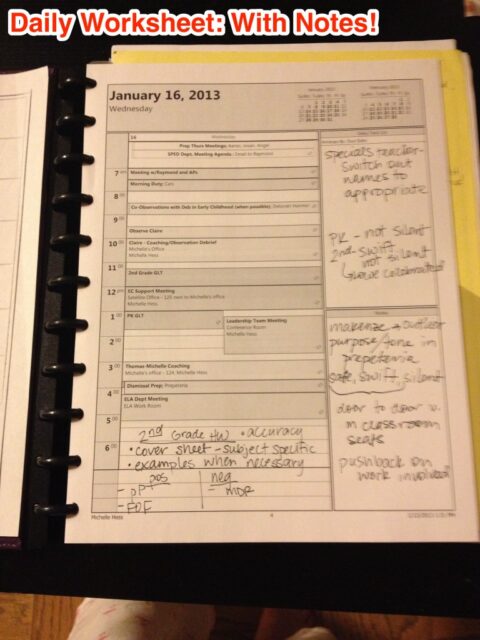 Daily Worksheet: With Notes!
January 16, 2013
Wednesday
16 Wednesday
Prep Thurs Meetings; Aaron, Jonah, Angel
SPED Dept. Meeting Agenda: Email to Raymond
7 am Meeting w/Raymond and APs
Morning Duty: Cars
8 00
Co-Observations with Deb in Early Childhood (when possible),
9 00
Observe Claire
10 00 Claire - Coaching/Observation Debrief
Michelle's Office
Michelle Hess
11 00
2nd Grade GLT
12 pm EC Support Meeting
Satellite Office - 125 next to Michelle's office
Michelle Hess
1 00 PK GLT
Leadership Team Meeting
Conference Room
Michelle Hess
2 00
3 00 Thomas-Michelle Coaching
Michelle's office - 124, Michelle Hess
Dismissal Prep; Prepetenia
4 00
ELA Dept Meeting
ELA Work Room
5 00
2nd Grade HW • accuracy
6 00 • cover sheet - subject specific
• examples when necessary
pos neg
- PPT - MOR
- FOF
Michelle Hess
4
specials teacher-
switch out
names to
appropriate
PK - not silent
2nd - swift
not silent
Notes
purpose/tone in
prepetenia
safe, swift, silent
door to door w.
m classroom
seats
pushback on
work involved